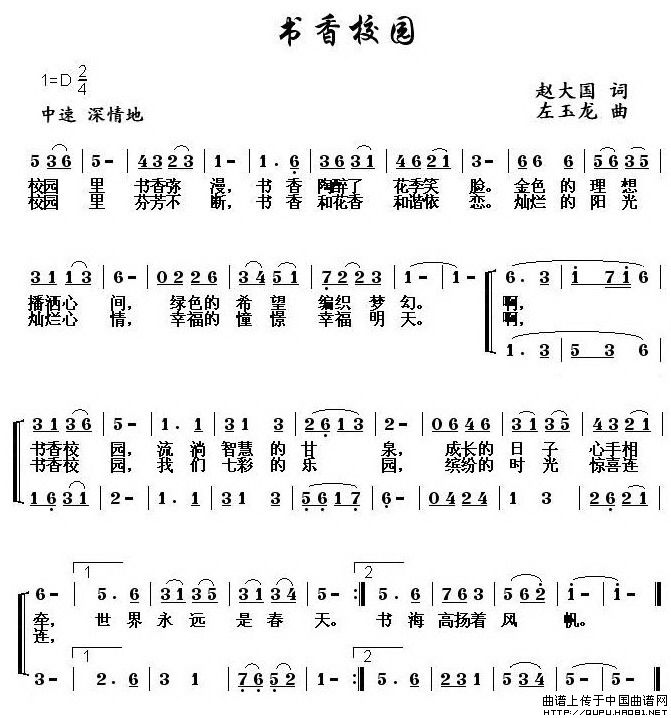 书香校园
1=D 2/4
赵大国 词
中速 深情地
左玉龙 曲
5 3 6 | 5 - | 4 3 2 3 | 1 - | 1 . 6 | 3 6 3 1 | 4 6 2 1 | 3 - | 6 6 6 | 5 6 3 5 |
校园 里 书香弥 漫, 书 香 陶醉了 花季笑 脸。 金色 的 理 想
校园 里 芬芳不 断, 书 香 和花香 和谐依 恋。 灿烂 的 阳 光
3 1 1 3 | 6 - | 0 2 2 6 | 3 4 5 1 | 7 2 2 3 | 1 - | 1 - | 6 . 3 | i 7 i 6 |
播洒心 间, 绿色的 希 望 编织 梦 幻。 啊,
灿烂心 情, 幸福的 憧 憬 幸福 明 天。 啊,
1 . 3 | 5 3 6 |
3 1 3 6 | 5 - | 1 . 1 | 3 1 3 | 2 6 1 3 | 2 - | 0 6 4 6 | 3 1 3 5 | 4 3 2 1 |
书香校 园, 流 淌 智慧 的 甘 泉, 成长的 日 子 心手相
书香校 园, 我 们 七彩 的 乐 园, 缤纷的 时 光 惊喜连
1 6 3 1 | 2 - | 1 . 3 | 3 1 3 1 | 5 6 1 7 | 6 - | 0 4 2 4 | 1 3 | 2 1 6 5 |
1 2
6 - | 5 . 6 | 1 3 5 | 3 1 3 4 | 5 - :| 5 . 6 | 7 6 3 | 5 6 2 | i - | i - ||
牵, 世 界 永 远 是 春 天。 书 海 高扬着 风 帆。
连,
3 - | 2 . 1 | 6 1 3 | 1 6 1 2 | 3 - :| 3 . 3 | 2 1 6 | 2 3 6 | 5 - | 5 - ||
曲谱上传于中国曲谱网
http://QUPU.HAO81.NET